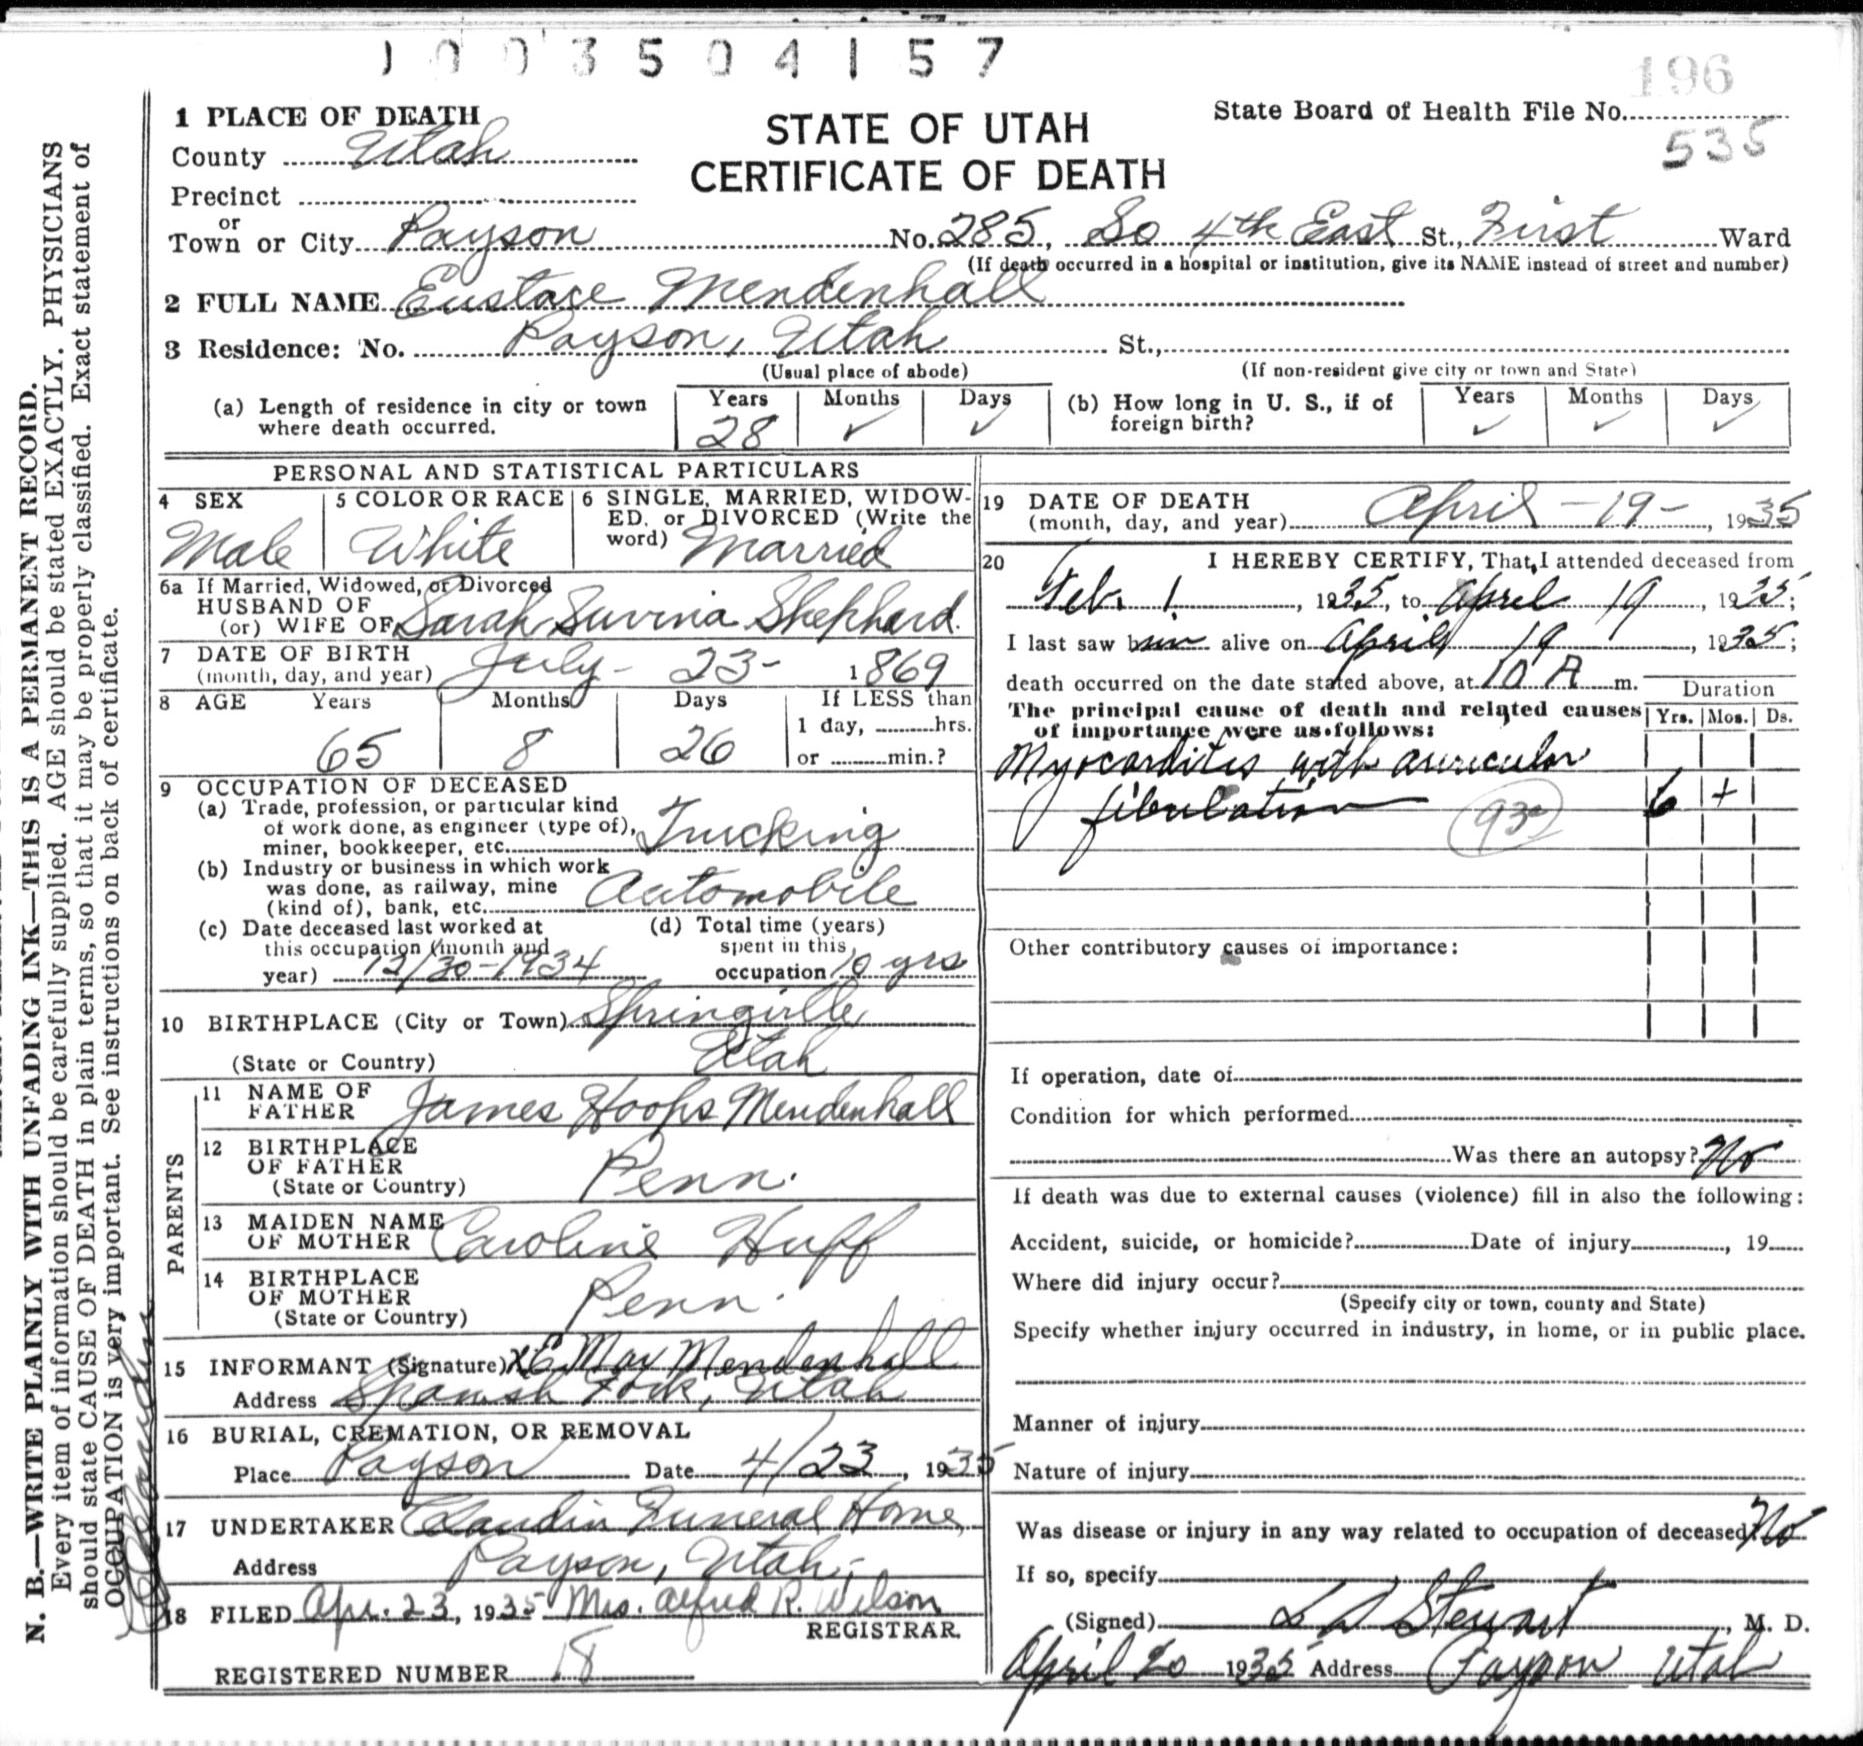 1003504157
196
1 PLACE OF DEATH
STATE OF UTAH
State Board of Health File No.
County Utah
CERTIFICATE OF DEATH
535
Precinct
or
Town or City Payson No. 285, So 4th East St., First Ward
(If death occurred in a hospital or institution, give its NAME instead of street and number)
2 FULL NAME Eustace Mendenhall
3 Residence: No. Payson, Utah St.,
(Usual place of abode) (If non-resident give city or town and State)
(a) Length of residence in city or town where death occurred. Years 28 Months ✓ Days ✓
(b) How long in U. S., if of foreign birth? Years ✓ Months ✓ Days ✓
PERSONAL AND STATISTICAL PARTICULARS
4 SEX Male
5 COLOR OR RACE White
6 SINGLE, MARRIED, WIDOW-
ED, or DIVORCED (Write the
word) Married
6a If Married, Widowed, or Divorced
HUSBAND OF
(or) WIFE OF Sarah Suvina Shephard.
7 DATE OF BIRTH
(month, day, and year) July - 23 - 1869
8 AGE Years 65 Months 8 Days 26
If LESS than
1 day, hrs.
or min.?
9 OCCUPATION OF DECEASED
(a) Trade, profession, or particular kind
of work done, as engineer (type of),
miner, bookkeeper, etc. Trucking
(b) Industry or business in which work
was done, as railway, mine
(kind of), bank, etc. Automobile
(c) Date deceased last worked at
this occupation (month and
year) 12/30-1934
(d) Total time (years)
spent in this
occupation 10 yrs
10 BIRTHPLACE (City or Town) Springville
(State or Country) Utah
PARENTS
11 NAME OF
FATHER James Hoops Mendenhall
12 BIRTHPLACE
OF FATHER
(State or Country) Penn.
13 MAIDEN NAME
OF MOTHER Caroline Huff
14 BIRTHPLACE
OF MOTHER
(State or Country) Penn.
15 INFORMANT (Signature) X E May Mendenhall
Address Spanish Fork, Utah
16 BURIAL, CREMATION, OR REMOVAL
Place Payson Date 4/23, 1935
17 UNDERTAKER Claudin Funeral Home
Address Payson, Utah.
18 FILED Apr. 23, 1935 Mrs. Alfred R. Wilson
REGISTRAR.
REGISTERED NUMBER 18
19 DATE OF DEATH
(month, day, and year) April - 19 - , 1935
20 I HEREBY CERTIFY, That I attended deceased from
Feb. 1, 1935, to April 19, 1935;
I last saw him alive on April 19, 1935;
death occurred on the date stated above, at 10 A m.
Duration
The principal cause of death and related causes
of importance were as follows: Yrs. Mos. Ds.
Myocarditis with auricular
fibulation 6 +
Other contributory causes of importance:
If operation, date of
Condition for which performed
Was there an autopsy? No
If death was due to external causes (violence) fill in also the following:
Accident, suicide, or homicide? Date of injury , 19
Where did injury occur?
(Specify city or town, county and State)
Specify whether injury occurred in industry, in home, or in public place.
Manner of injury
Nature of injury
Was disease or injury in any way related to occupation of deceased? No
If so, specify
(Signed) L D Stewart, M. D.
April 20 1935 Address Payson Utah
N. B.—WRITE PLAINLY WITH UNFADING INK—THIS IS A PERMANENT RECORD.
Every item of information should be carefully supplied. AGE should be stated EXACTLY. PHYSICIANS
should state CAUSE OF DEATH in plain terms, so that it may be properly classified. Exact statement of
OCCUPATION is very important. See instructions on back of certificate.